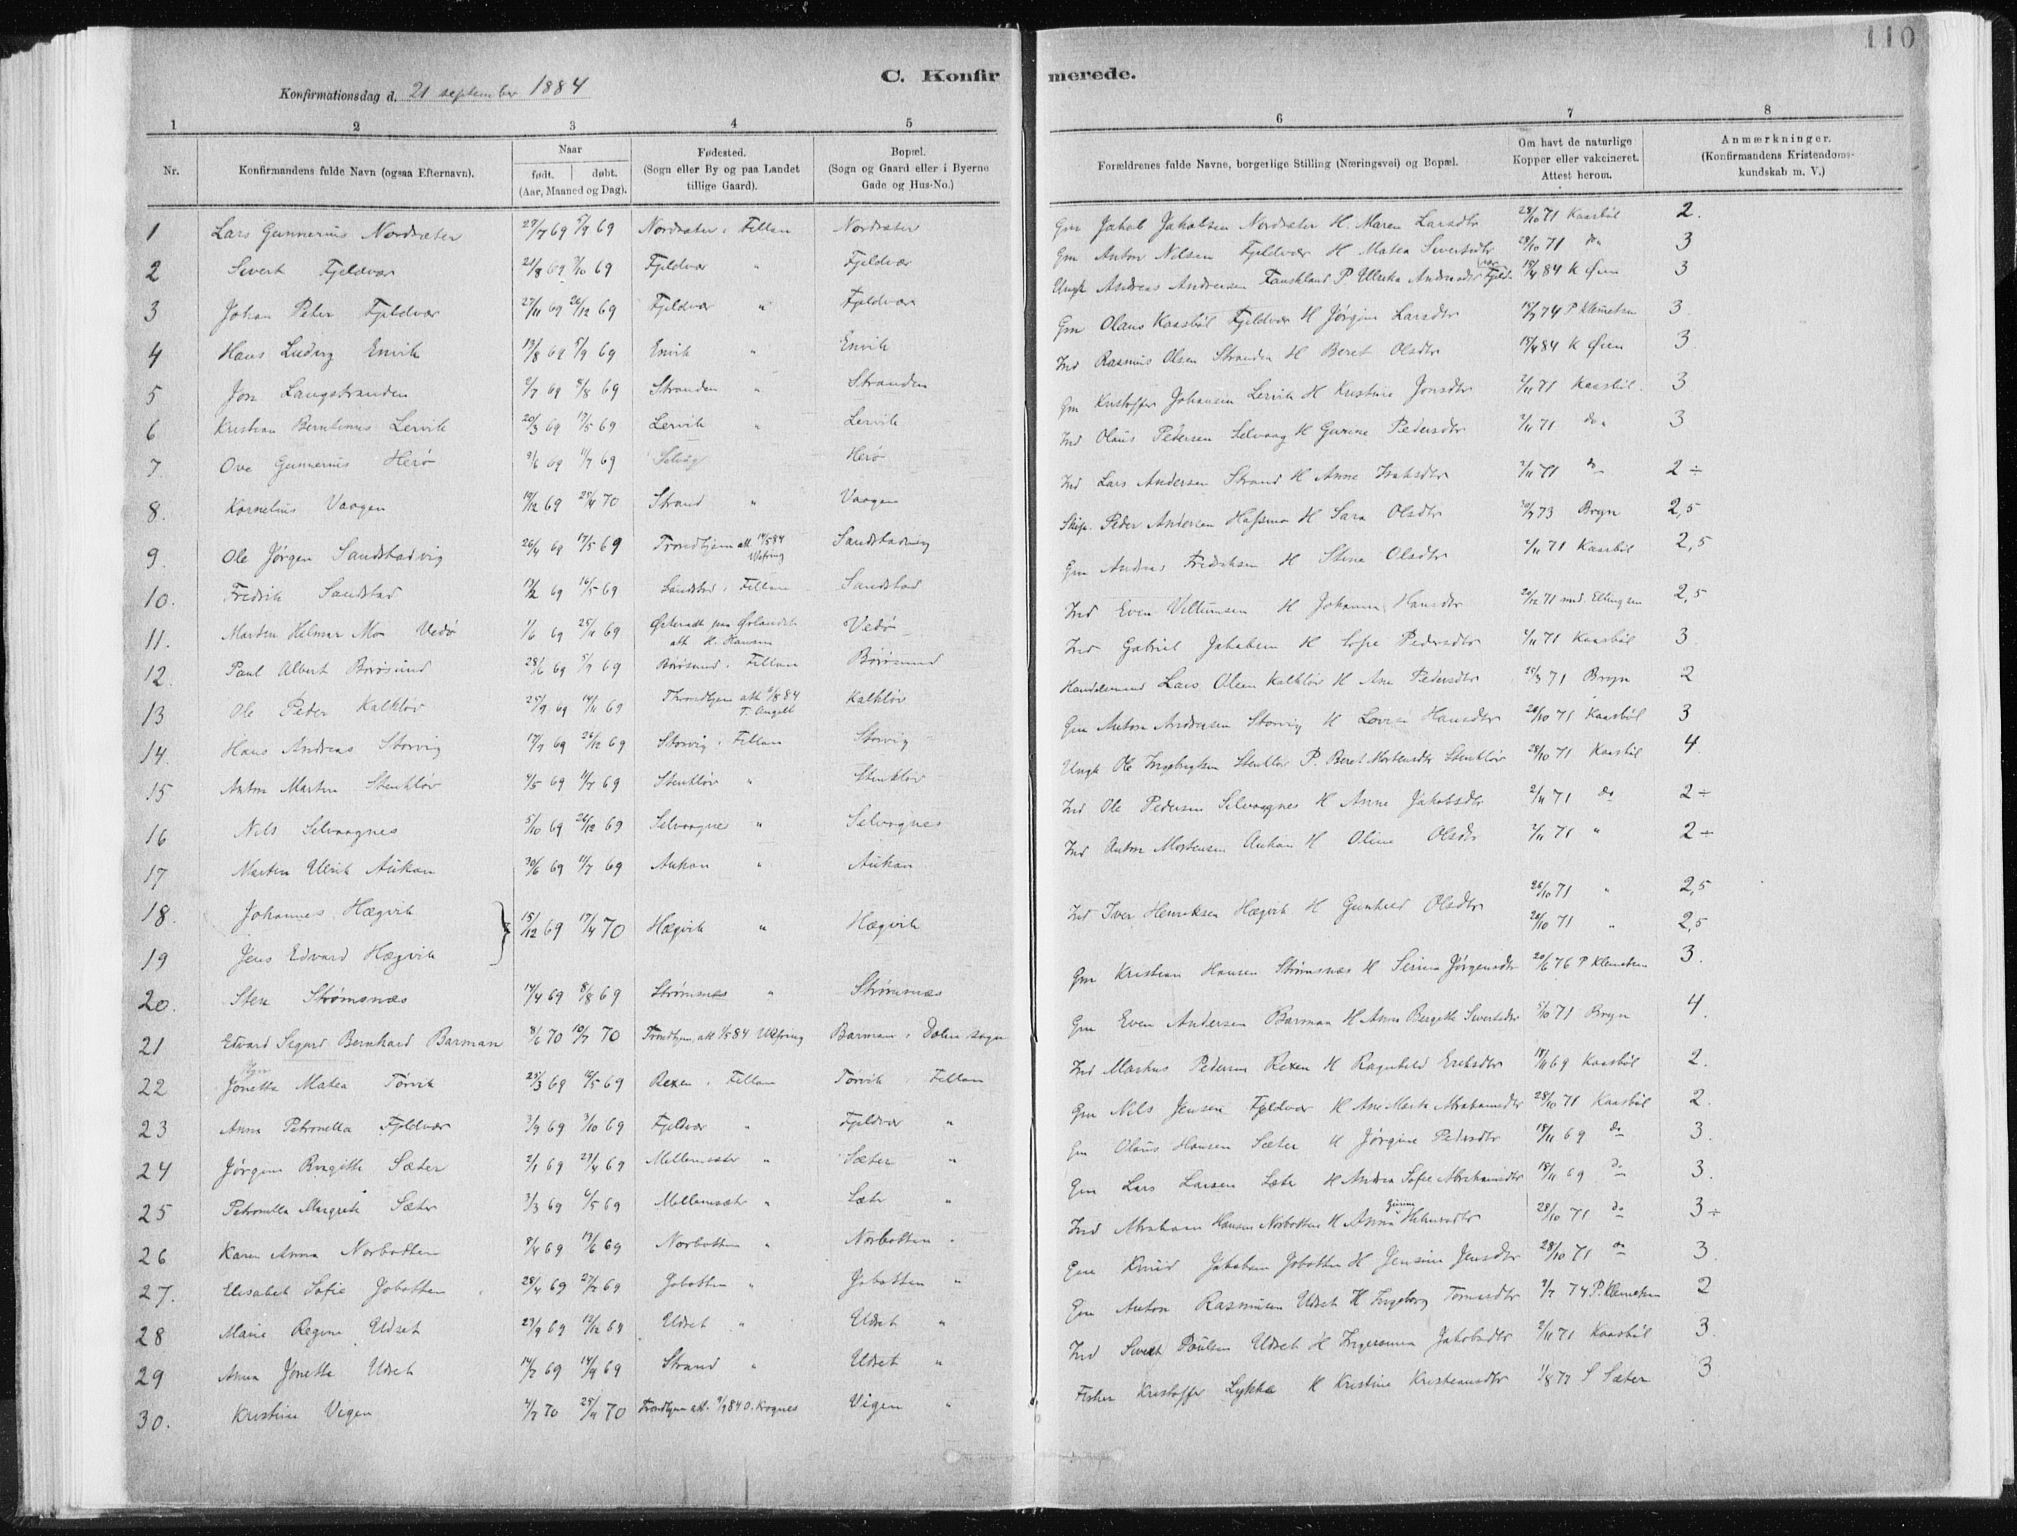 110
C. Konfir merede.
Konfirmationsdag d. 21 september 1884
1 2 3 4 5 6 7 8
Nr. Konfirmandens fulde Navn (ogsaa Efternavn). Naar født. døbt. (Aar, Maaned og Dag). Fødested. (Sogn eller By og paa Landet tillige Gaard). Bopæl. (Sogn og Gaard eller i Byerne Gade og Hus-No.) Forældrenes fulde Navne, borgerlige Stilling (Næringsvei) og Bopæl. Om havt de naturlige Kopper eller vakcineret. Attest herom. Anmærkninger. (Konfirmandens Kristendoms-kundskab m. V.)
1 Lars Gunnerius Nordsæter 27/7 69 5/9 69 Nordsæter i Fillan Nordsæter Gm Jakob Jakobsen Nordsæter H. Maren Larsdtr 28/10 71 Kaasbøl 2.
2 Sivert Fjeldvær 21/8 69 3/10 69 Fjeldvær " Fjeldvær Gm Anton Nilsen Fjeldvær H Matea Sivertsdtr 28/10 71 do 3
3 Johan Peter Fjeldvær 27/11 69 26/12 69 Fjeldvær " Fjeldvær Ungk Andreas Andersen P Ulrika Andreasdtr Fjeldvær 18/4 84 K Øien 3
4 Hans Ludvig Envik 19/8 69 5/9 69 Envik " Envik Gm Olaus Kaasbøl Fjeldvær H Jørgine Larsdtr 74 P Klemetsen 3
5 Jon Langstranden 2/7 69 8/8 69 Stranden " Stranden Ind Rasmus Olsen Stranden H Beret Olsdtr 18/4 84 K Øien 3
6 Kristian Berntinus Lervik 20/3 69 17/5 69 Lervik " Lervik Gm Kristoffer Johansen Lervik H Kristine Jonsdtr 2/11 71 Kaasbøl 3
7. Ove Gunnerius Herø 9/6 69 11/7 69 Herø Ind Olaus Pedersen Selvaag H Gurine Pedersdtr 2/11 71 do 3
8. Kornelius Vaagen 19/12 69 25/4 70 Strand " Vaagen Ind Lars Andersen Strand H Anne Isaksdtr 2/11 71 do 2 ÷
9. Ole Jørgen Sandstadvig 26/4 69 17/5 69 Trondhjem att 14/5 84 Sandstadvig Skip. Peder Andersen H Sara Olsdtr 73 Bryn 2,5
10. Fredrik Sandstad 69 16/5 69 Sandstad i Fillan Sandstad Gm Andreas Fredriksen H Stina Olsdtr 2/11 71 Kaasbøl 2,5
11. Martin Hilmar Mo Vedø 1/6 69 25/11 69 att H. Hansen Vedø Ind Even Villumsen H Johanna Hansdtr 71 Ellingsen 2,5
12. Paul Albert Børøsund 28/6 69 5/9 69 Børøsund i Fillan Børøsund Ind Gabriel Jakobsen H Sofie Pedersdtr 2/11 71 Kaasbøl 3.
13 Ole Peder Kalkløv 25/9 69 14/11 69 Throndhjem att 2/8 84 T. Angell Kalkløv Handelsmand Lars Olsen Kalkløv H Ane Pedersdtr 25/3 71 Bryn 2
14. Hans Andreas Storvig 17/9 69 26/12 69 Storvig i Fillan Storvig Gm Anton Andersen Storvig H Lovise Hansdtr 28/10 71 Kaasbøl 3
15 Anton Martin Stenkløv 4/5 69 11/7 69 Stenkløv " Stenkløv Ungk Ole Ingebrigtsen Stenkløv P. Beret Mortensdtr Stenkløv 28/10 71 Kaasbøl 4.
16 Nils Selvaagnes 5/10 69 26/12 69 Selvaagnes " Selvagnes Ind Ole Pedersen Selvaagnes H Anne Jakobsdtr 2/11 71 do 2 ÷
17 Martin Ulrik Aukan 30/6 69 11/7 69 Aukan " Aukan Ind Anton Mortensen Aukan H Oline Olsdtr 2/11 71 " 2 ÷
18. Johannes Hægvik 15/12 69 17/4 70 Hægvik " Hægvik Ind Iver Henriksen Hægvik H Gunhild Olsdtr 28/10 71 " 2,5
19 Jens Edvard Hægvik 28/10 71 " 2,5
20. Sten Strømsnæs 14/4 69 8/8 69 Strømsnæs " Strømsnæs Gm Kristian Hansen Strømsnæs H Serina Jørgensdtr 20/6 76 P Klemetsen 3.
21 Edvard Sigurd Bernhard Barman 8/6 70 10/7 70 Trondhjem att 1/5 84 Barman i Dolm sogn Gm Even Andersen Barman H Anna Bergitte Sivertsdtr 5/10 71 Bryn 4.
22 Jonetta Matea Tørvik 25/3 69 16/5 69 Rexen i Fillan Tørvik i Fillan Ind Markus Pedersen Rexen H Ragnhild Eriksdtr 18/11 69 Kaasbøl 2.
23 Anna Petronella Fjeldvær 3/9 69 3/10 69 Fjeldvær " Fjeldvær " Gm Nils Jensen Fjeldvær H Ane Marta Abrahamsdtr 28/10 71 Kaasbøl 2.
24 Jørgine Birgitte Sæter 2/1 69 23/4 69 Mellemsæter " Sæter " Gm Olaus Hansen Sæter H Jørgine Pedersdtr 18/11 69 do 3.
25 Petronella Margrete Sæter 3/3 69 6/5 69 Mellemsæter " Sæter " Gm Lars Larsen Sæter H Andrea Sofie Abrahamsdtr 18/11 69 do 3.
26 Karen Anna Norbotten 8/4 69 13/6 69 Norbotten " Norbotten " Ind Abraham Hansen Norbotten H Anna 28/10 71 do 3 ÷
27. Elisabet Sofie Jobotten 28/4 69 69 Jobotten " Jobotten " Gm Knud Jakobsen Jobotten H Jensine Jensdtr 28/10 71 do 3.
28 Marie Regine Udset 23/9 69 12/12 69 Udset " Udset " Gm Anton Rasmusen Udset H Ingeborg 2/7 74 P. Klemetsen 2
29 Anna Jonetta Udset 14/7 69 14/9 69 Strand " Udset " Ind Sivert Poulsen Udset H Jakobsdtr 2/11 71 Kaasbøl 3.
30. Kristine Vigen 4/7 70 25/11 70 Trondhjem att. Vigen " Fisker Kristoffer Lykke H Kristine Kristiansdtr 1/8 77 S Sæter 3